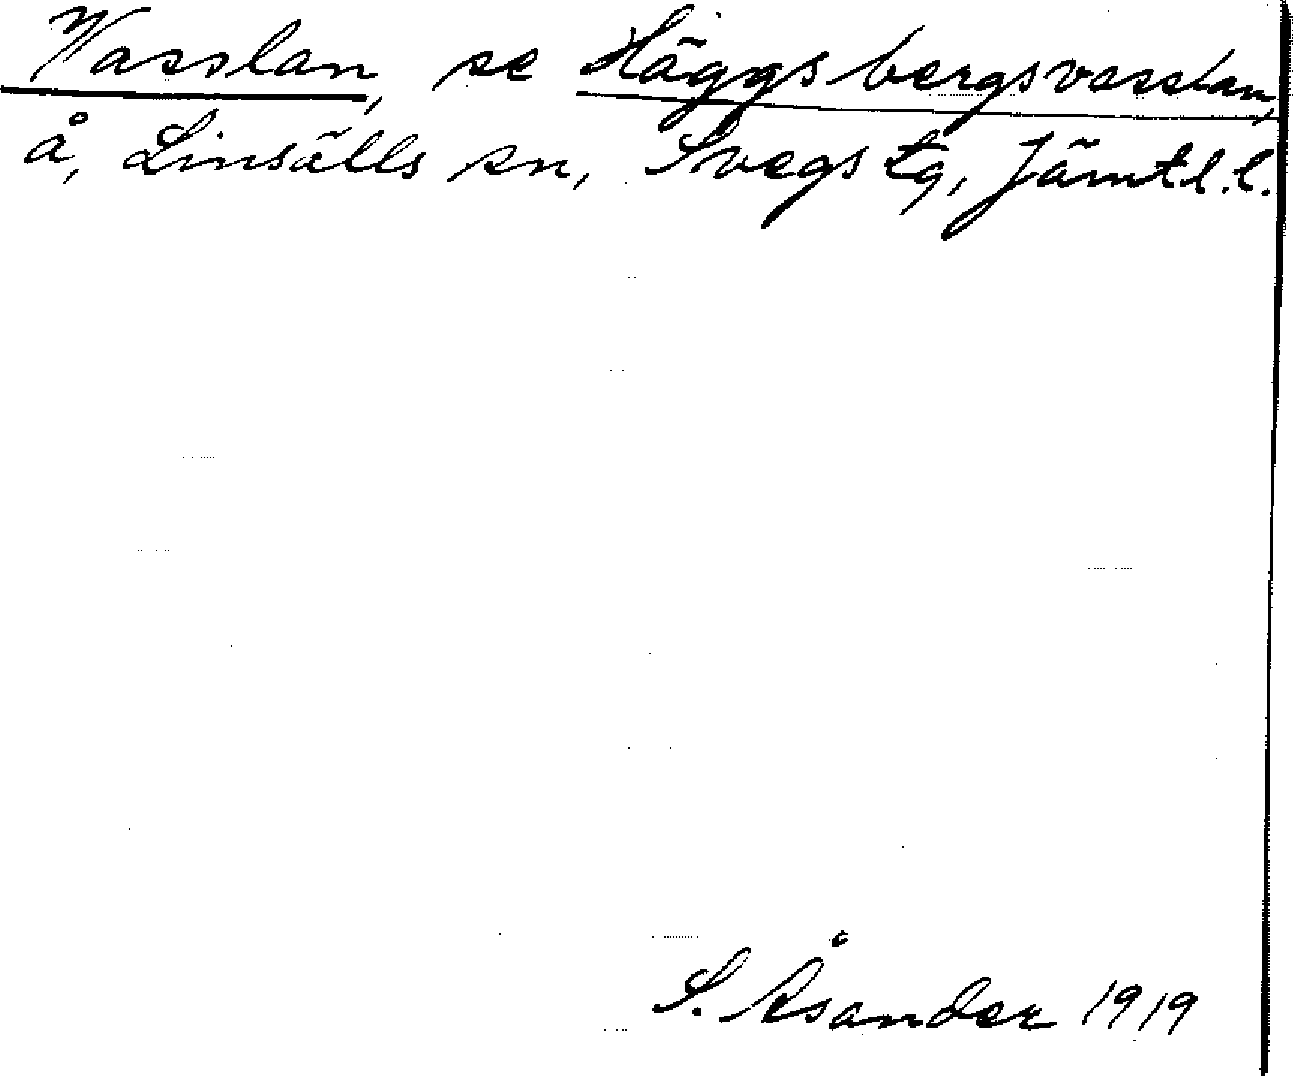 Vasslan, se Häggsbergsvasslan,
å, Linsälls sn, Svegs tg, Jämtl. l.
S. Åsander 1919